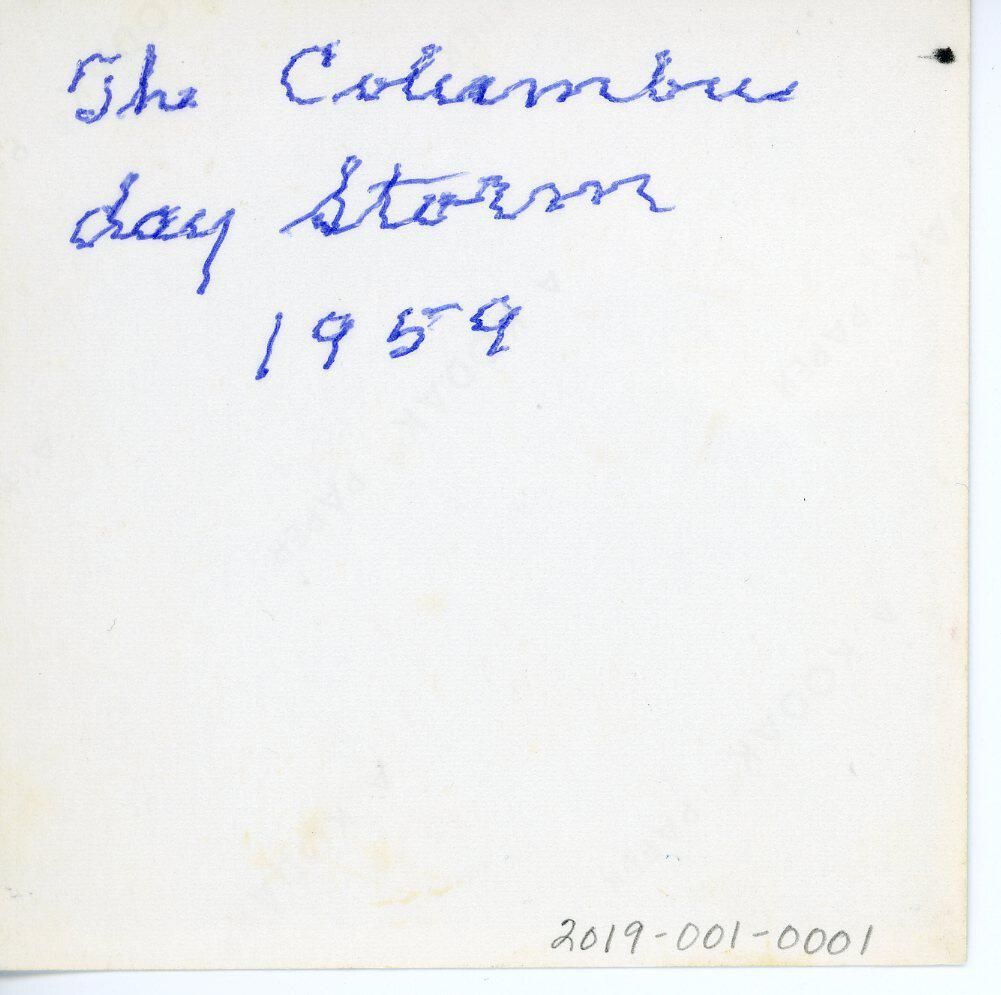 The Columbus
day Storm
1959
2019-001-0001